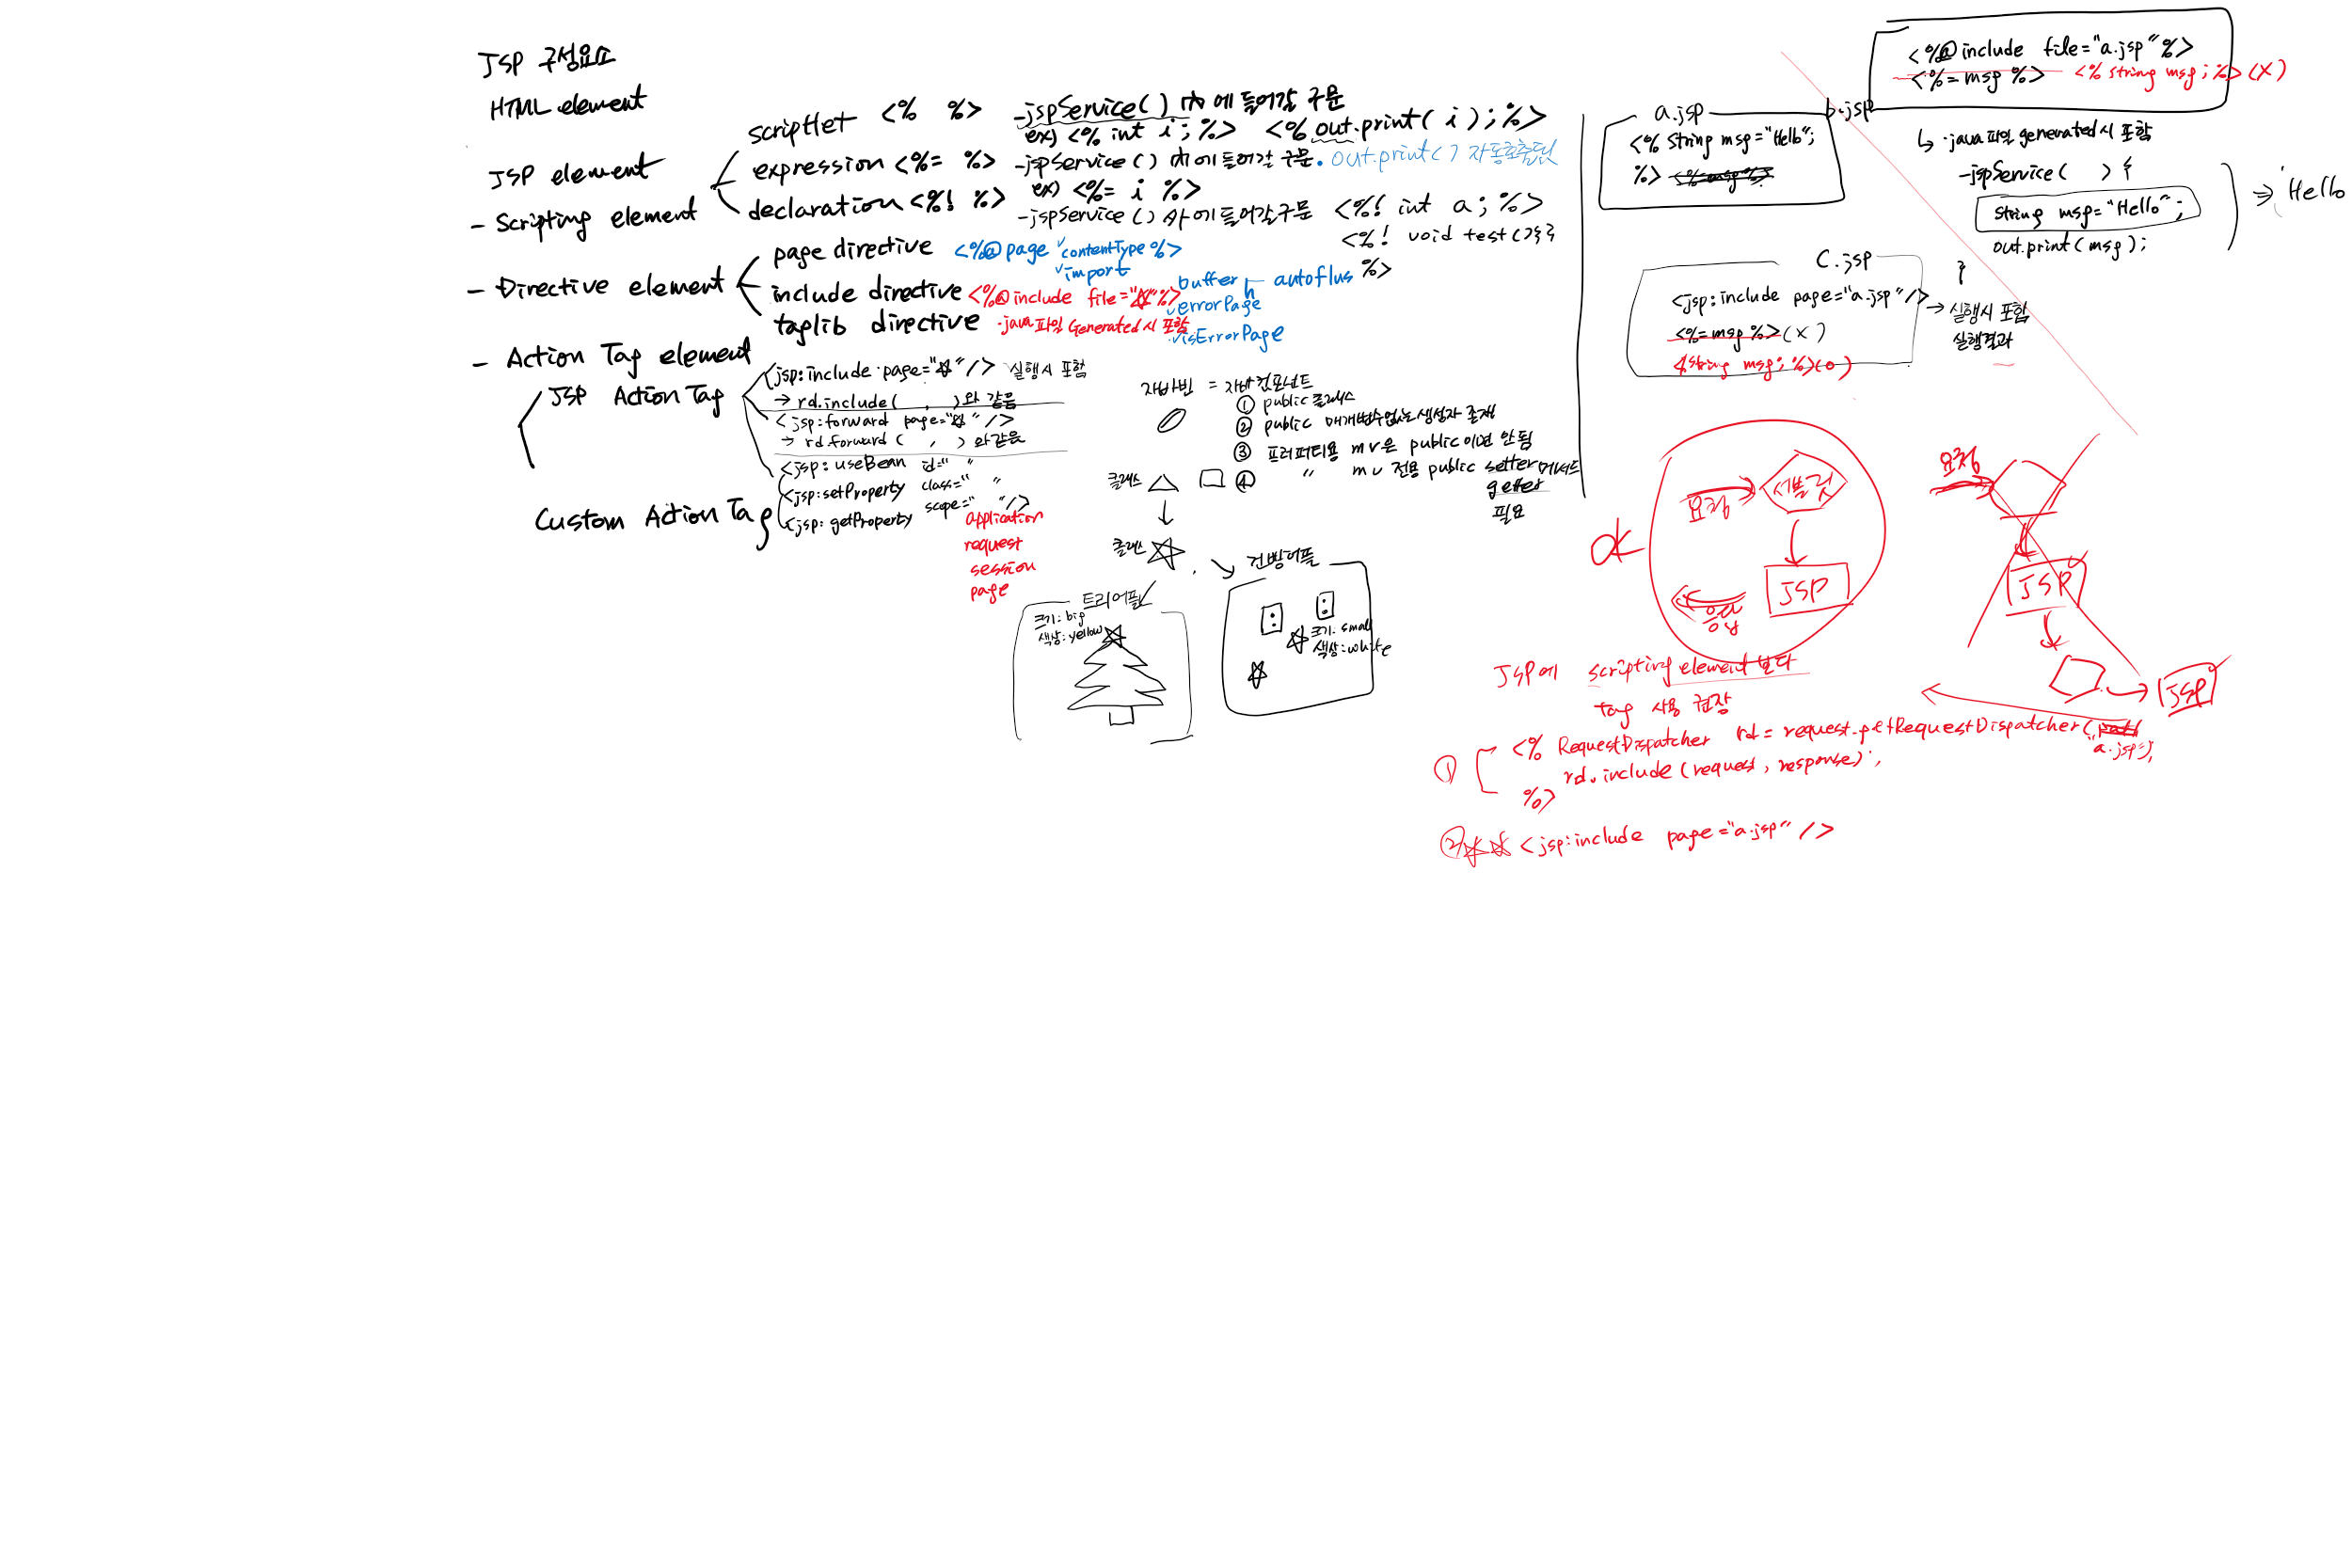 JSP 구성요소
HTML element
JSP element
- Scripting element
scriptlet <% %> _jspService() 內에 들어갈 구문
ex) <% int i; %> <% out.print( i ); %>
expression <%= %> _jspService() 內에 들어갈 구문. out.print() 자동호출됨
ex) <%= i %>
declaration <%! %> _jspService() 外에 들어갈구문 <%! int a; %>
<%! void test(){}
%>
- Directive element
page directive <%@ page contentType %>
import
buffer autoflus
errorPage
isErrorPage
include directive <%@ include file="☆" %>
taglib directive .java파일 Generated시 포함
- Action Tag element
JSP Action Tag
<jsp:include page="☆" /> 실행시 포함
→ rd.include( , )와 같음
<jsp:forward page="☆" />
→ rd.forward ( , ) 와같음
<jsp:useBean id=" "
class=" "
scope=" "/>
<jsp:setProperty
<jsp:getProperty
application
request
session
page
Custom Action Tag
자바빈 = 자바컴포넌트
① public클래스
② public 매개변수없는생성자 존재
③ 프러퍼티용 mv은 public이면 안됨
④ " mv 전용 public setter메서드
getter
필요
클래스
클래스
트리어플
크기: big
색상: yellow
건빵어플
크기: small
색상: white
a.jsp
<% String msg="Hello";
%> <%=msg%>
b.jsp
<%@ include file="a.jsp" %>
<%= msg %> <% String msg; %> (X)
↳ .java파일 generated시 포함
_jspService( ) {
String msg="Hello";
out.print(msg);
}
⇒ Hello
C.jsp
<jsp:include page="a.jsp"/>
<%=msg %> (X)
<String msg; %>(O)
→ 실행시 포함
실행결과
ok
요청
서블릿
JSP
응답
요청
JSP
JSP
JSP에 scripting element 보다
tag 사용 권장
① <% RequestDispatcher rd = request.getRequestDispatcher(
"a.jsp");
rd.include(request, response);
%>
② ☆☆ <jsp:include page="a.jsp" />